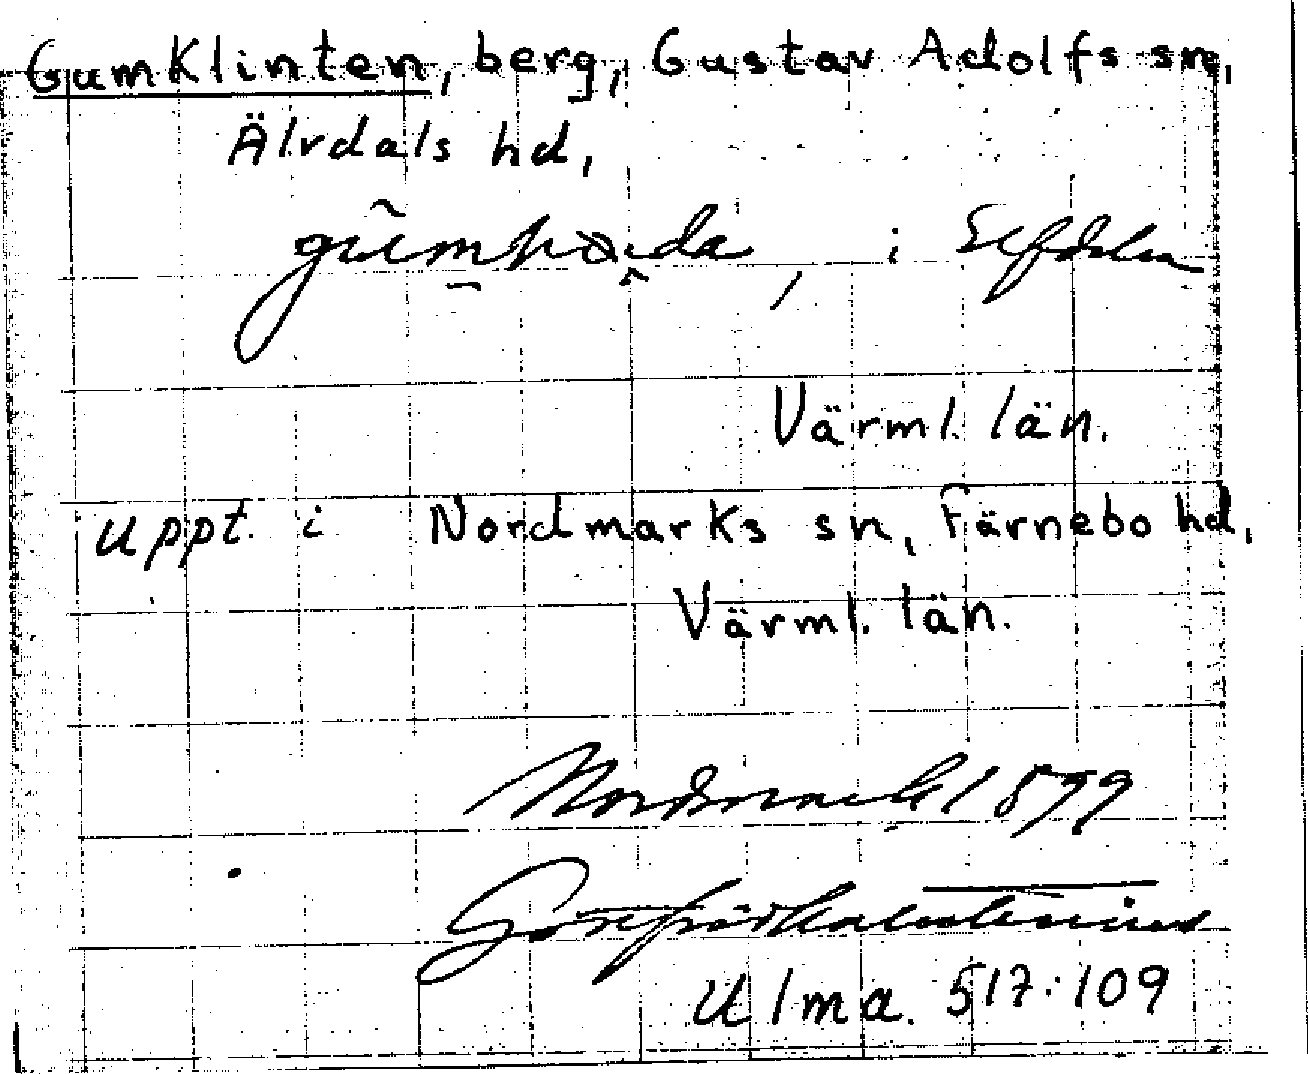 GumKlinten, berg, Gustav Adolfs sn,
Älvdals hd,
i Elfdalen
Värml. län.
uppt. i Nordmarks sn, Färnebo hd,
Värml. län.
Nordmark 1899
Ulma. 517:109